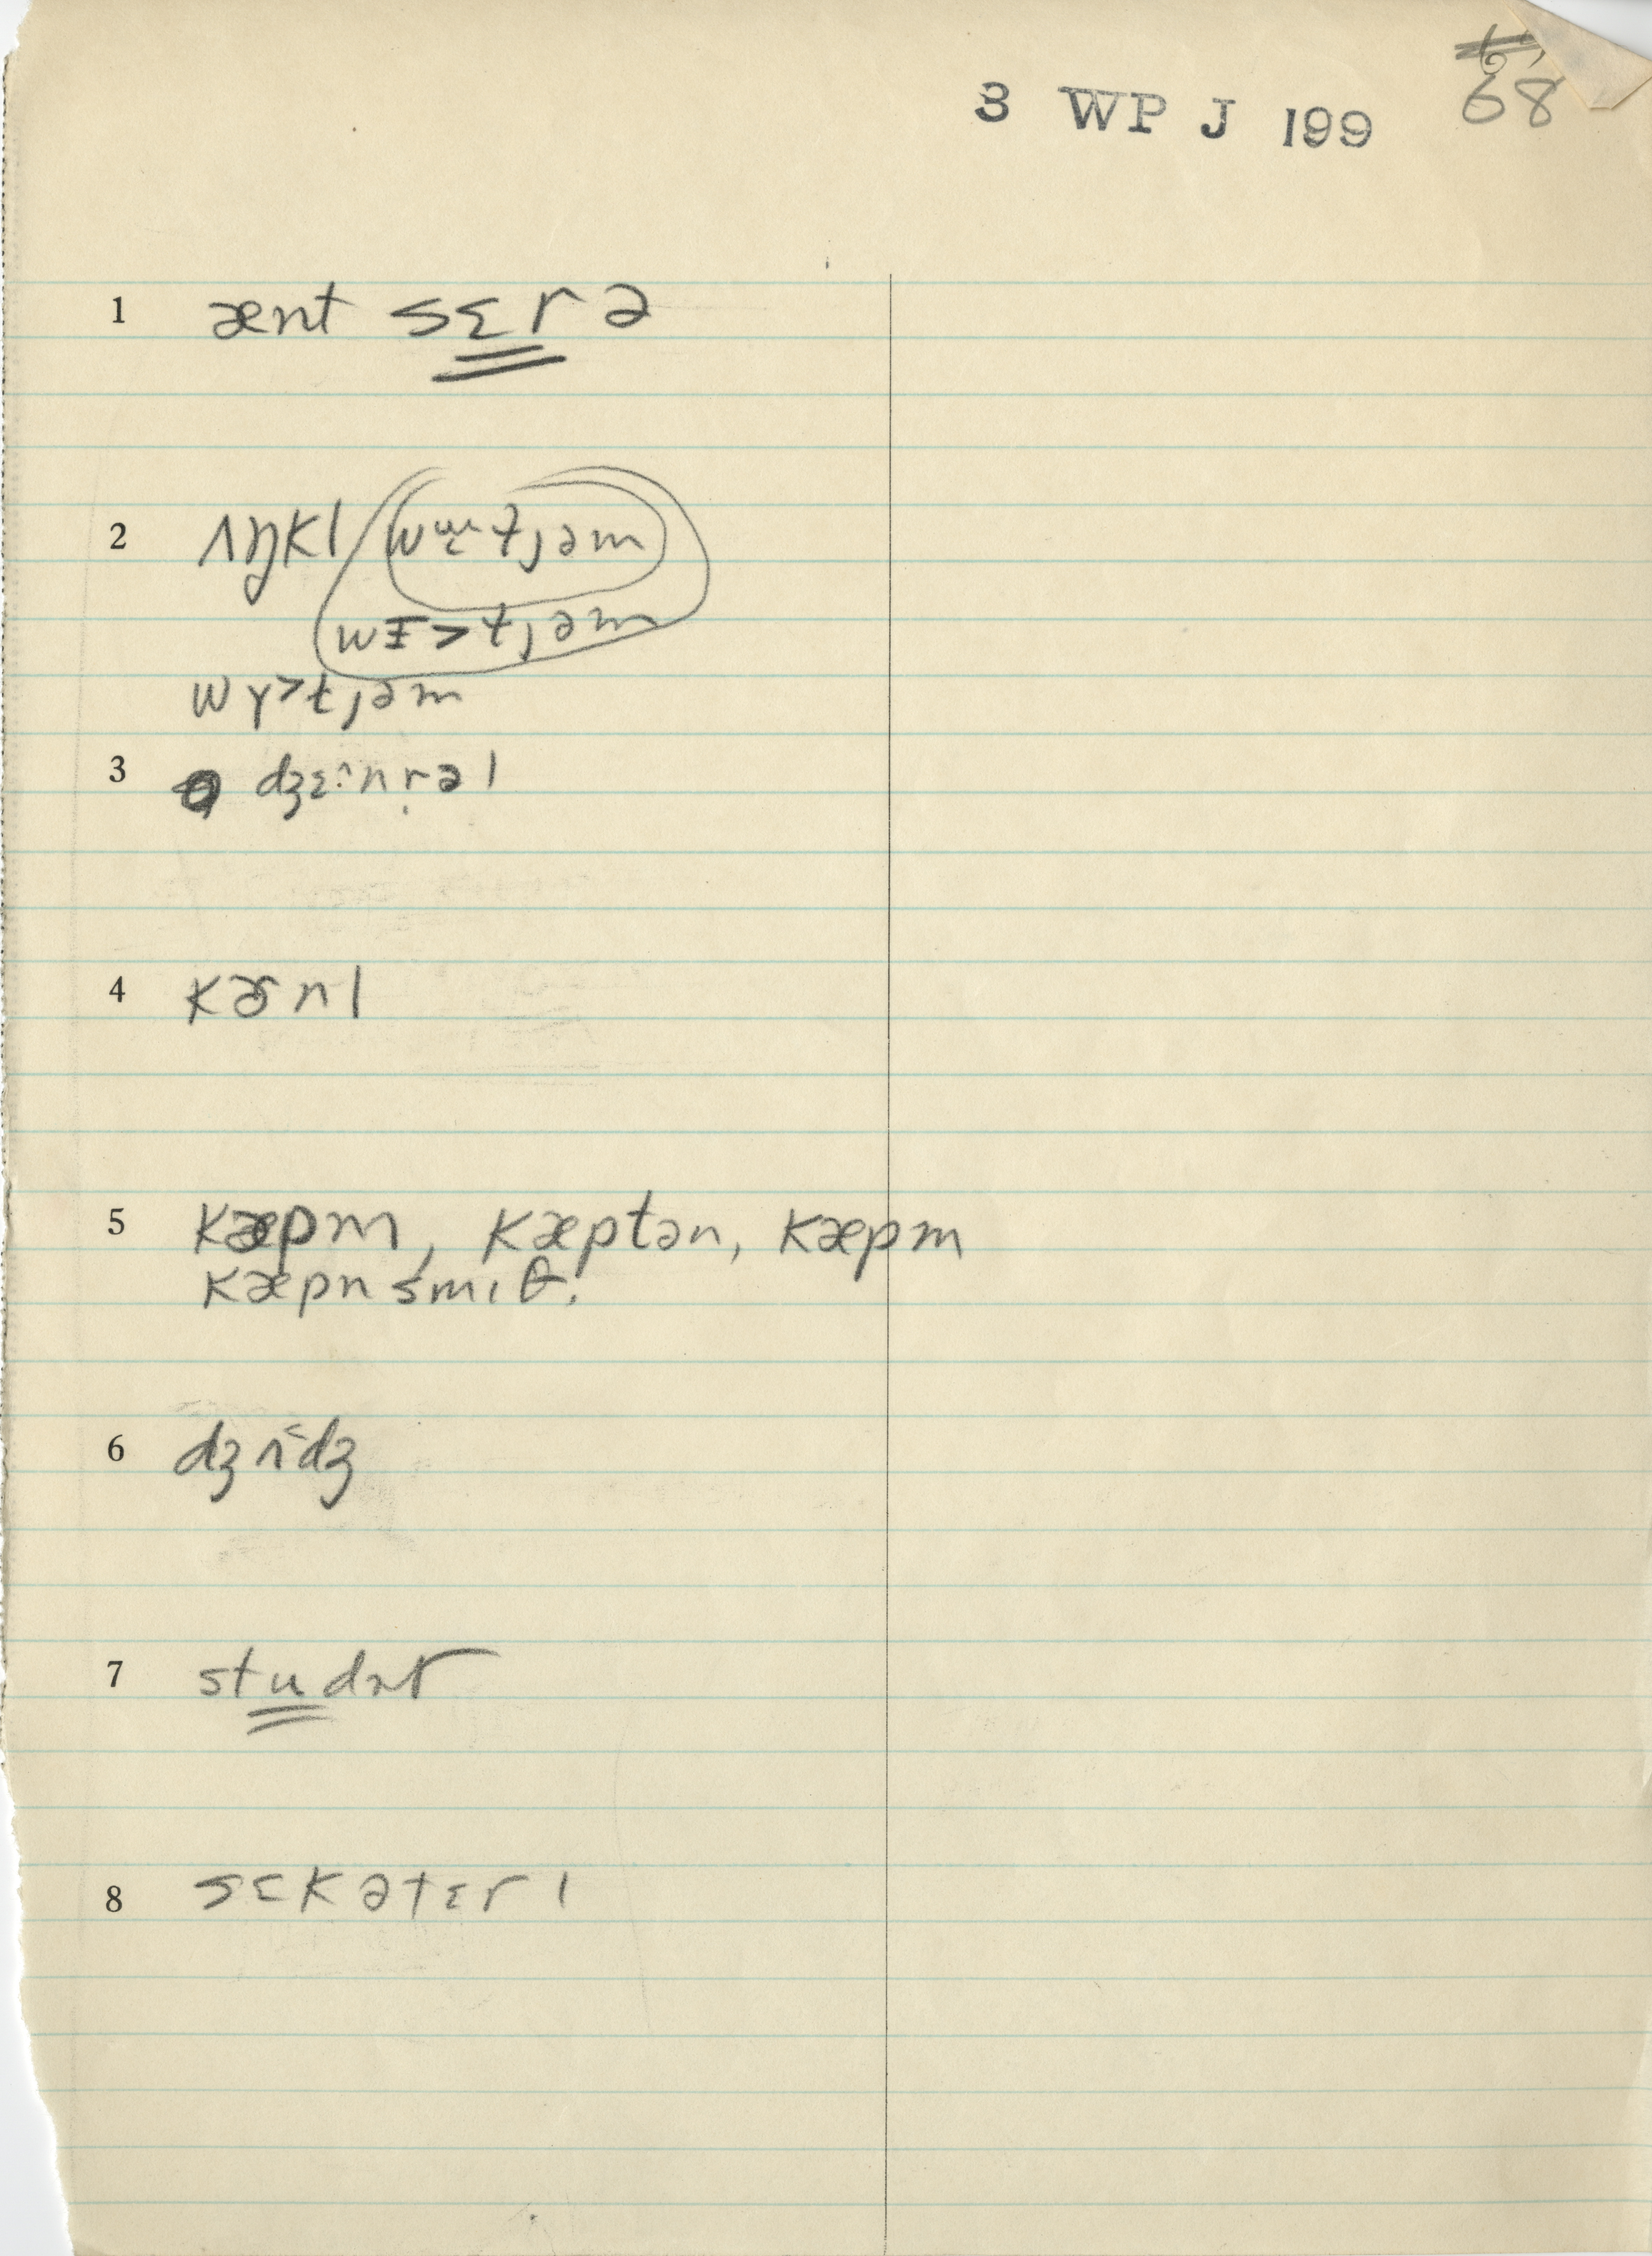 68
3 WP J 199
1 ænt sɛrə
2 ʌŋkl
wɪ>tjəm
wʏ>tjəm
3 dʒɛ^nrəl
4 kɚnl
5 kæpm, kæptən, kæpm
kæpn smɪθ.
6 dʒʌ<dʒ
7 studnt
8 sɛkətɛrɪ